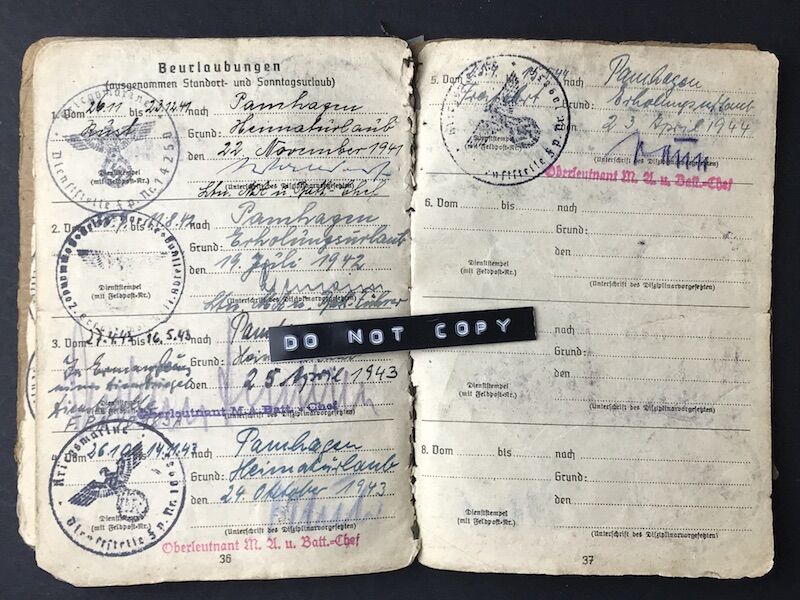 Beurlaubungen
(ausgenommen Standort- und Sonntagsurlaub)
1. Vom 26.11 bis 23.12.41 nach Pamhagen
Grund: Heimaturlaub
den 22 November 1941
Dienststempel
(mit Feldpost-Nr.)
(Unterschrift des Disziplinarvorgesetzten)
Kriegsmarine
Dienststelle F.P. Nr.
2. bis 8.42 nach Pamhagen
Grund: Erholungsurlaub
den 19. Juli 1942
Dienststempel
(mit Feldpost-Nr.)
(Unterschrift des Disziplinarvorgesetzten)
3. Vom 27.4.43 bis 16.5.43 nach
Grund:
den 25 April 1943
(Unterschrift des Disziplinarvorgesetzten)
Oberleutnant M.A. Batt.-Chef
DO NOT COPY
4. Vom 26.10. 14.11.43 nach Pamhagen
Grund: Heimaturlaub
den 24 Oktober 1943
Dienststempel
(mit Feldpost-Nr.)
(Unterschrift des Disziplinarvorgesetzten)
Kriegsmarine
Dienststelle F.P. Nr.
Oberleutnant M. A. u. Batt.-Chef
36
5. Vom bis 44 nach Pamhagen
Grund: Erholungsurlaub
den 23 April 1944
Dienststempel
(mit Feldpost-Nr.)
(Unterschrift des Disziplinarvorgesetzten)
Oberleutnant M. A. u. Batt.-Chef
6. Vom bis nach
Grund:
den
Dienststempel
(mit Feldpost-Nr.)
(Unterschrift des Disziplinarvorgesetzten)
nach
Grund:
den
Dienststempel
(mit Feldpost-Nr.)
(Unterschrift des Disziplinarvorgesetzten)
8. Vom bis nach
Grund:
den
Dienststempel
(mit Feldpost-Nr.)
(Unterschrift des Disziplinarvorgesetzten)
37